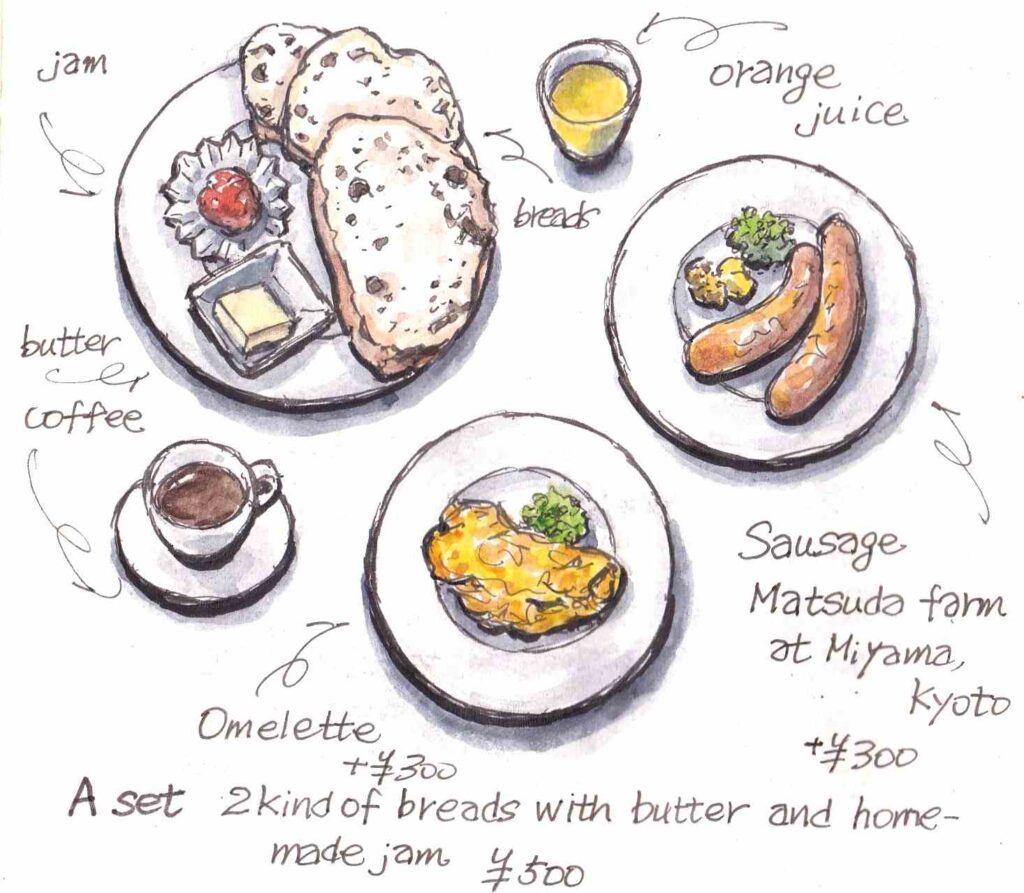 jam
orange
juice
breads
butter
coffee
Sausage
Matsuda farm
at Miyama,
Kyoto
+¥300
Omelette
+¥300
A set 2 kind of breads with butter and home-
made jam ¥500